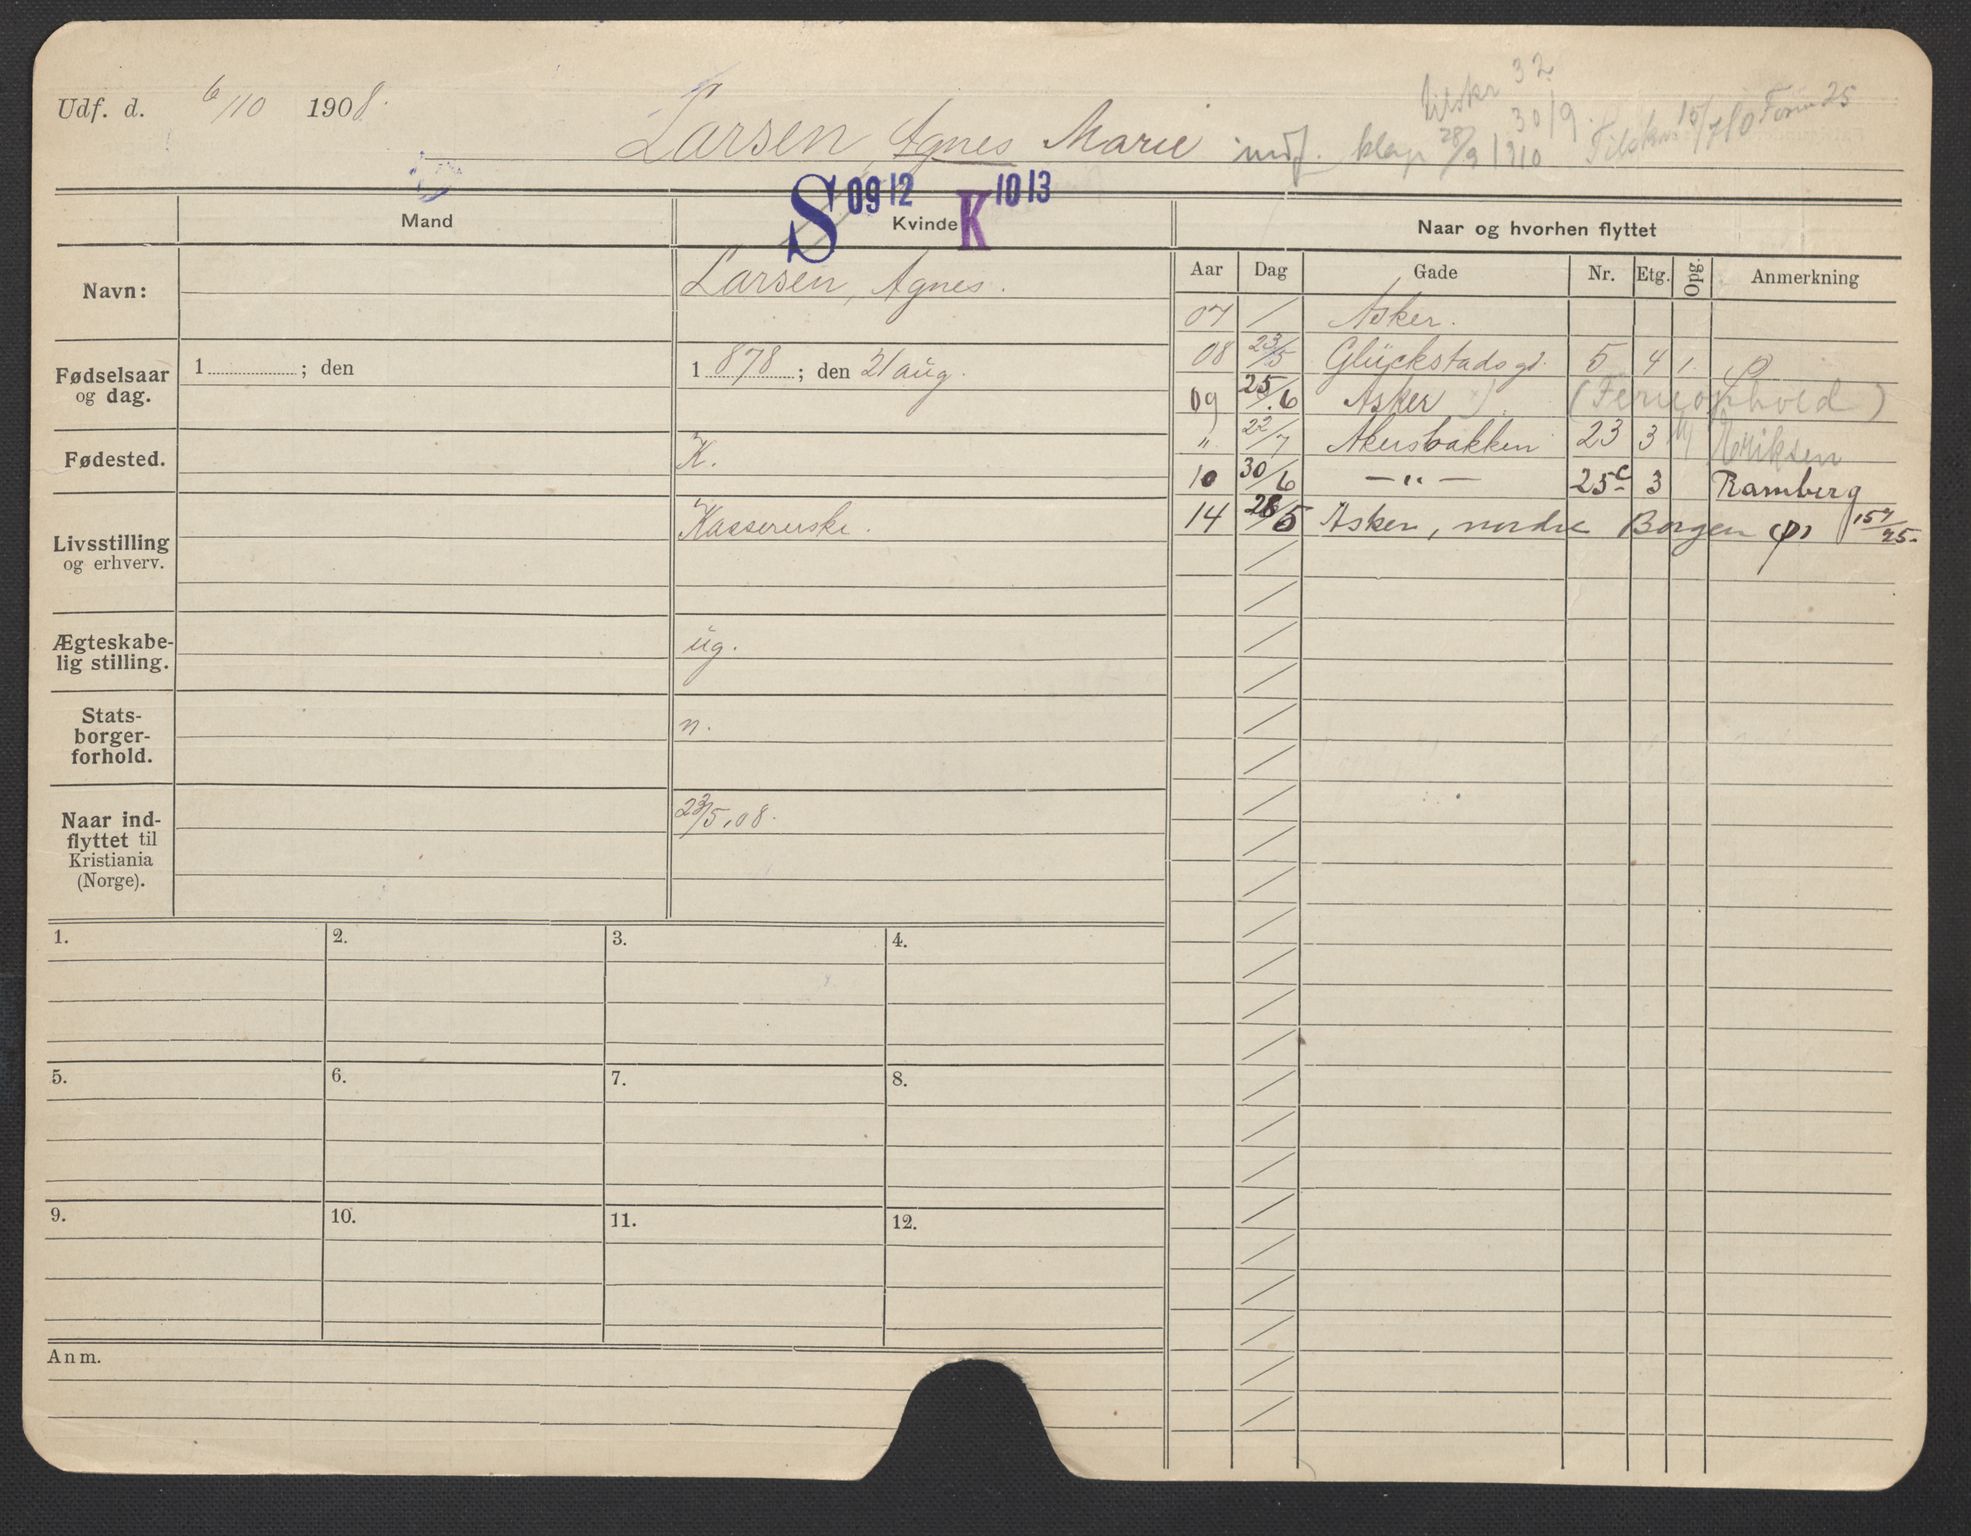 Udf. d. 6/10 1908.
Larsen, Agnes Marie
tilskr 32
30/9.
indf. klap 28/9 1910
15/7 10 Form 25
S 0912 K 1013
Mand
Kvinde
Naar og hvorhen flyttet
Navn:
Larsen, Agnes.
Fødselsaar og dag.
1 ; den
1 878 ; den 21 aug.
Fødested.
K.
Livsstilling og erhverv.
Kassererske.
Ægteskabe-
lig stilling.
ug.
Stats-
borger-
forhold.
n.
Naar ind-
flyttet til
Kristiania
(Norge).
23/5.08.
Aar Dag Gade Nr. Etg. Opg. Anmerkning
07 / Asker.
08 23/5 Glückstadsgd. 5 4 1. φ
09 25/6 Asker (Ferieophold)
" 22/7 Akersbakken 23 3 Eriksen
10 30/6 —"— 25c 3 Ramberg
14 28/5 Asker, nordre Borgen φ 157/25
1. 2. 3. 4.
5. 6. 7. 8.
9. 10. 11. 12.
Anm.